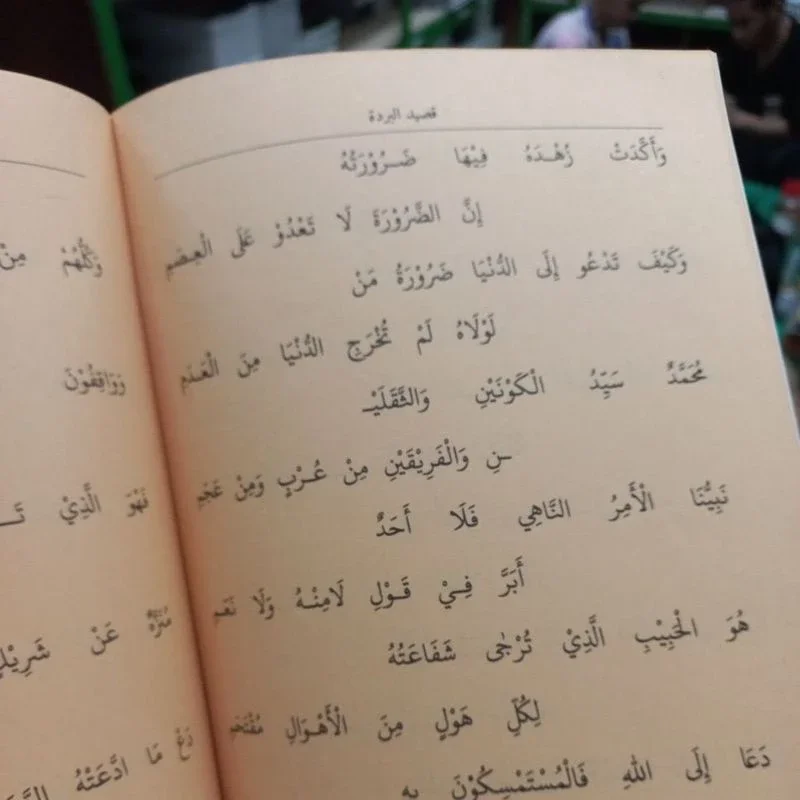 قصيد البردة
وَأَكَّدَتْ زُهْـدَهُ فِيْهَا ضَـرُوْرَتُهُ
إِنَّ الضَّرُوْرَةَ لَا تَعْدُوْ عَلَى الْعِصَمِ
وَكَيْفَ تَدْعُو إِلَى الدُّنْيَا ضَرُوْرَةُ مَنْ
لَوْلَاهُ لَمْ تُخْرَجِ الدُّنْيَا مِنَ الْعَدَمِ
مُحَمَّدٌ سَيِّدُ الْكَوْنَيْنِ وَالثَّقَلَيْـ
ـنِ وَالْفَرِيْقَيْنِ مِنْ عُـرْبٍ وَمِنْ عَجَمِ
نَبِيُّنَا الْأَمِرُ النَّاهِي فَلَا أَحَدٌ
أَبَرَّ فِـيْ قَـوْلِ لَامِنْـهُ وَلَا نَعَمِ
هُوَ الْحَبِيْبِ الَّذِيْ تُرْجٰى شَفَاعَتُهُ
لِكُلِّ هَوْلٍ مِنَ الْأَهْـوَالِ مُقْتَحَمِ
دَعَا إِلَى اللهِ فَالْمُسْتَمْسِكُوْنَ بِهِ
وَكُلُّهُمْ مِنْ
وَوَاقِفُوْنَ
فَهْوَ الَّذِيْ تَـ
مُنَزَّهٌ عَنْ شَرِيْكٍ
دَعْ مَا ادَّعَتْهُ